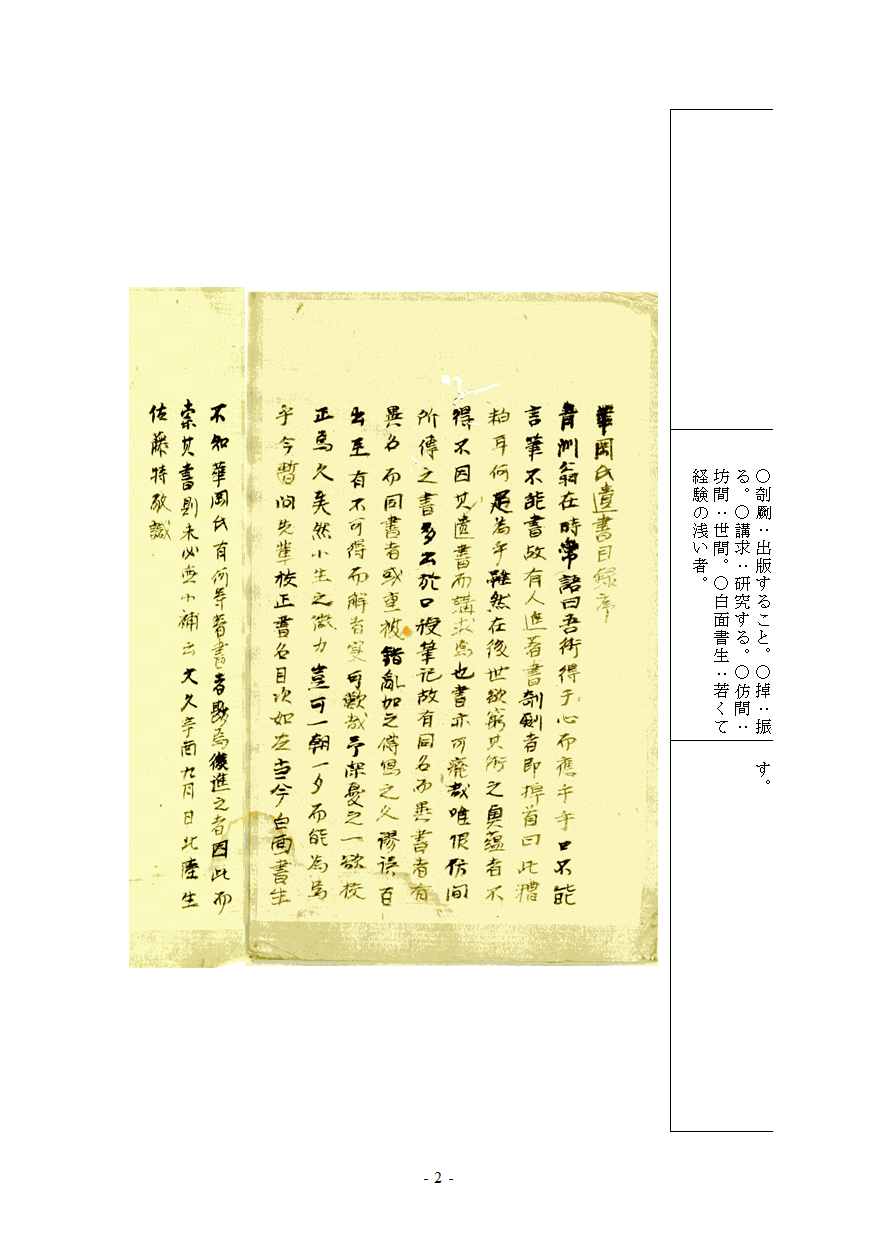 ○剞劂：出版すること。○掉：振
る。○講求：研究する。○仿間：
坊間：世間。○白面書生：若くて
経験の浅い者。
す。
華岡氏遺書目録序
青洲翁在時常語曰吾術得于心而應乎手口不能
言筆不能書故有人進著書剞劂者即掉首曰此糟
粕耳何足為乎雖然在後世欲窮其術之奥蘊者不
得不因其遺書而講求焉也書亦可廃哉唯恨仿間
所傳之書多出於口授筆記故有同名而異書者有
異名而同書者或重複錯亂加之傳寫之久謬誤百
出至有不可得而解者寔可歎哉予深憂之一欲校
正焉久矣然小生之微力豈可一朝一夕而能為焉
乎今暫問先輩校正書名目次如左当今白面書生
不知華岡氏有何等著書者歟為後進之者因此而
索其書則未必無小補云文久辛酉九月日北陸生
佐藤持敬識
- 2 -